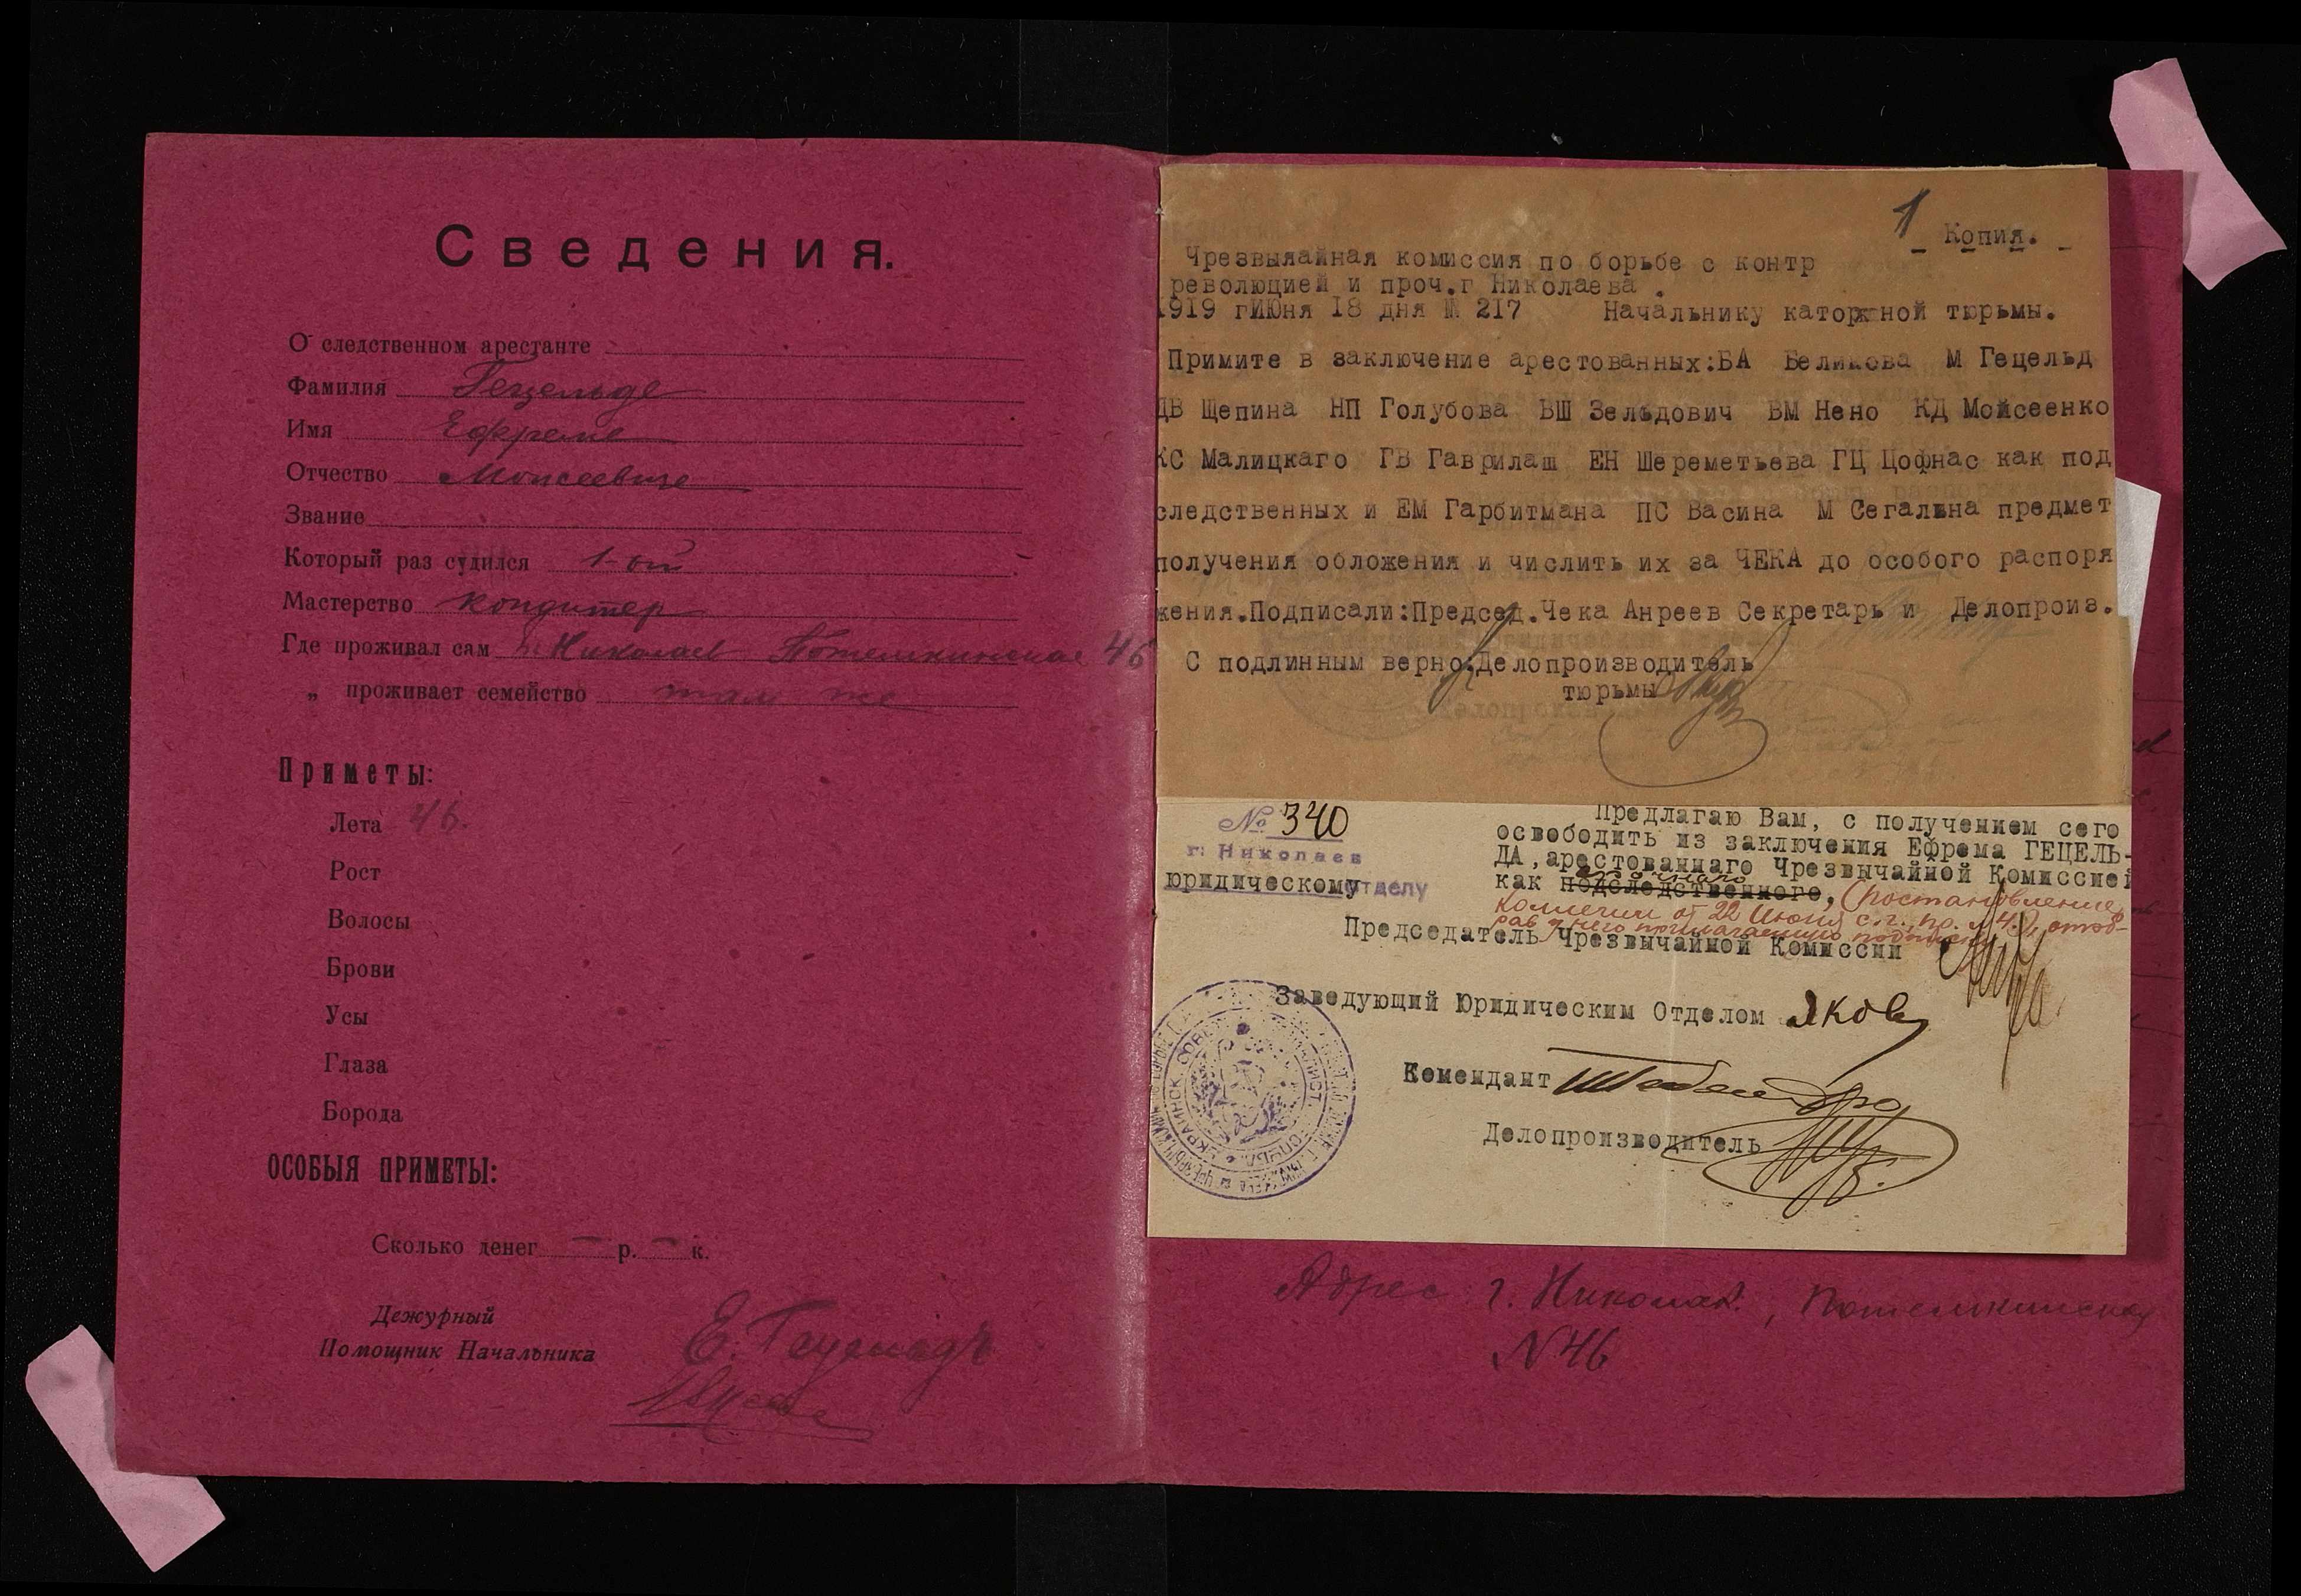 Сведения.
О следственном арестанте
Фамилия Гецельде
Имя Ефреме
Отчество Моисеевиче
Звание
Который раз судился 1-ый
Мастерство кондитер
Где проживал сам г. Николаев Потемкинская 46
„ проживает семейство там же
Приметы:
Лета 46.
Рост
Волосы
Брови
Усы
Глаза
Борода
ОСОБЫЯ ПРИМЕТЫ:
Сколько денег — р. — к.
Дежурный
Помощник Начальника
Е. Гецельдъ
1
Копия.
Чрезвыяайная комиссия по борьбе с контр
революцией и проч.г Николаева .
1919 гИЮня I8 дня № 217 Начальнику каторжной тюрьмы.
Примите в заключение арестованных:БА Беликова М Гецельд
ДВ Щепина НП Голубова ВШ Зельдович ВМ Нено КД Мойсеенко
КС Малицкаго ГВ Гаврилаш ЕН Шереметьева ГЦ Цофнас как под
следственных и ЕМ Гарбитмана ПС Васина М Сегалина предмет
получения обложения и числить их за ЧЕКА до особого распоря
жения.Подписали:Председ.Чека Анреев Секретарь и Делопроиз.
С подлинным верно:Делопроизводитель
тюрьмы
№ 340
г. Николаев
юридическому отделу
Предлагаю Вам, с получением сего
освободить из заключения Ефрема ГЕЦЕЛЬ-
ДА, арестованнаго Чрезвычайной Комиссией
как подследственного, (постановление
коллегии от 22 Июня с.г., пр. №4), отоб-
рав у него прилагаемую подписку
Председатель Чрезвычайной Комиссии
Заведующий Юридическим Отделом Яков
Комендант
Делопроизводитель
Адрес г. Николаев., Потемкинская
N 46